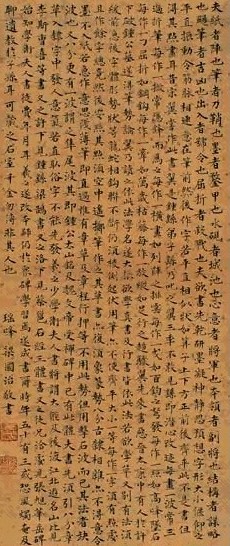 夫紙者陣也筆者刀鞘也墨者鍪甲也水硯者城池也心意者將軍也本領者副將也結構者謀略
也颺筆者吉凶也出入者號令也屈折者殺戮也夫欲書先乾研墨凝神靜思預想字形大小偃仰
平直振動令筋脉相連意在筆前然後作字若平直相似狀如算子上下方正前後齊平此不是書但
得其點畫耳昔宋翼常作此書翼是鍾繇弟子繇乃叱之翼三年不敢見繇即潛心改迹每畫一波常三
過折筆每作一點常隱鋒而為之每作一橫畫如列陣之排雲每作一戈如百鈞之弩發每作一點如高峰墜石
每作一屈折如鋼鉤每作一牽如萬歲枯藤每作一放縱如足行之趣驟翼先來書惡晉太康中有人於許
下破鍾繇墓遂得筆勢論翼讀之依此法學書名遂大振欲真書及行書皆依此法若欲學草書又別有法須
緩前急後字體形勢狀等龍蛇相鉤連不斷仍須稜側起伏用筆亦不得使齊平大小一等每作一字須有點處
且作餘字總竟然後安點其點須空中遙擲筆作之其草書亦復須象篆勢八分古隸相雜亦不得急令
墨不入紙若急作意思淺薄而筆即直過惟有章草及章程行狎等不用此勢但用擊石波而已其擊石波者缺
波也又八分更有一波謂之隼尾波即鍾公太山銘及魏文帝受禪碑中已有此體夫書先須引八分章
草入隸字中發人意氣若直取俗字則不能先發羲之少學衛夫人書將謂大能及渡江北遊名山見
李斯曹喜等書又之許下見鍾繇梁鵠書又之洛下見蔡邕石經三體書又於從兄洽處見張昶華岳碑
始知學衛夫人書徒費年月耳羲之遂改本師仍於眾碑學習焉遂成書爾時年五十有三恐風燭奄及
聊遺教於子孫耳可藏之石室千金勿傳非其人也
瑶峰梁國治敬書